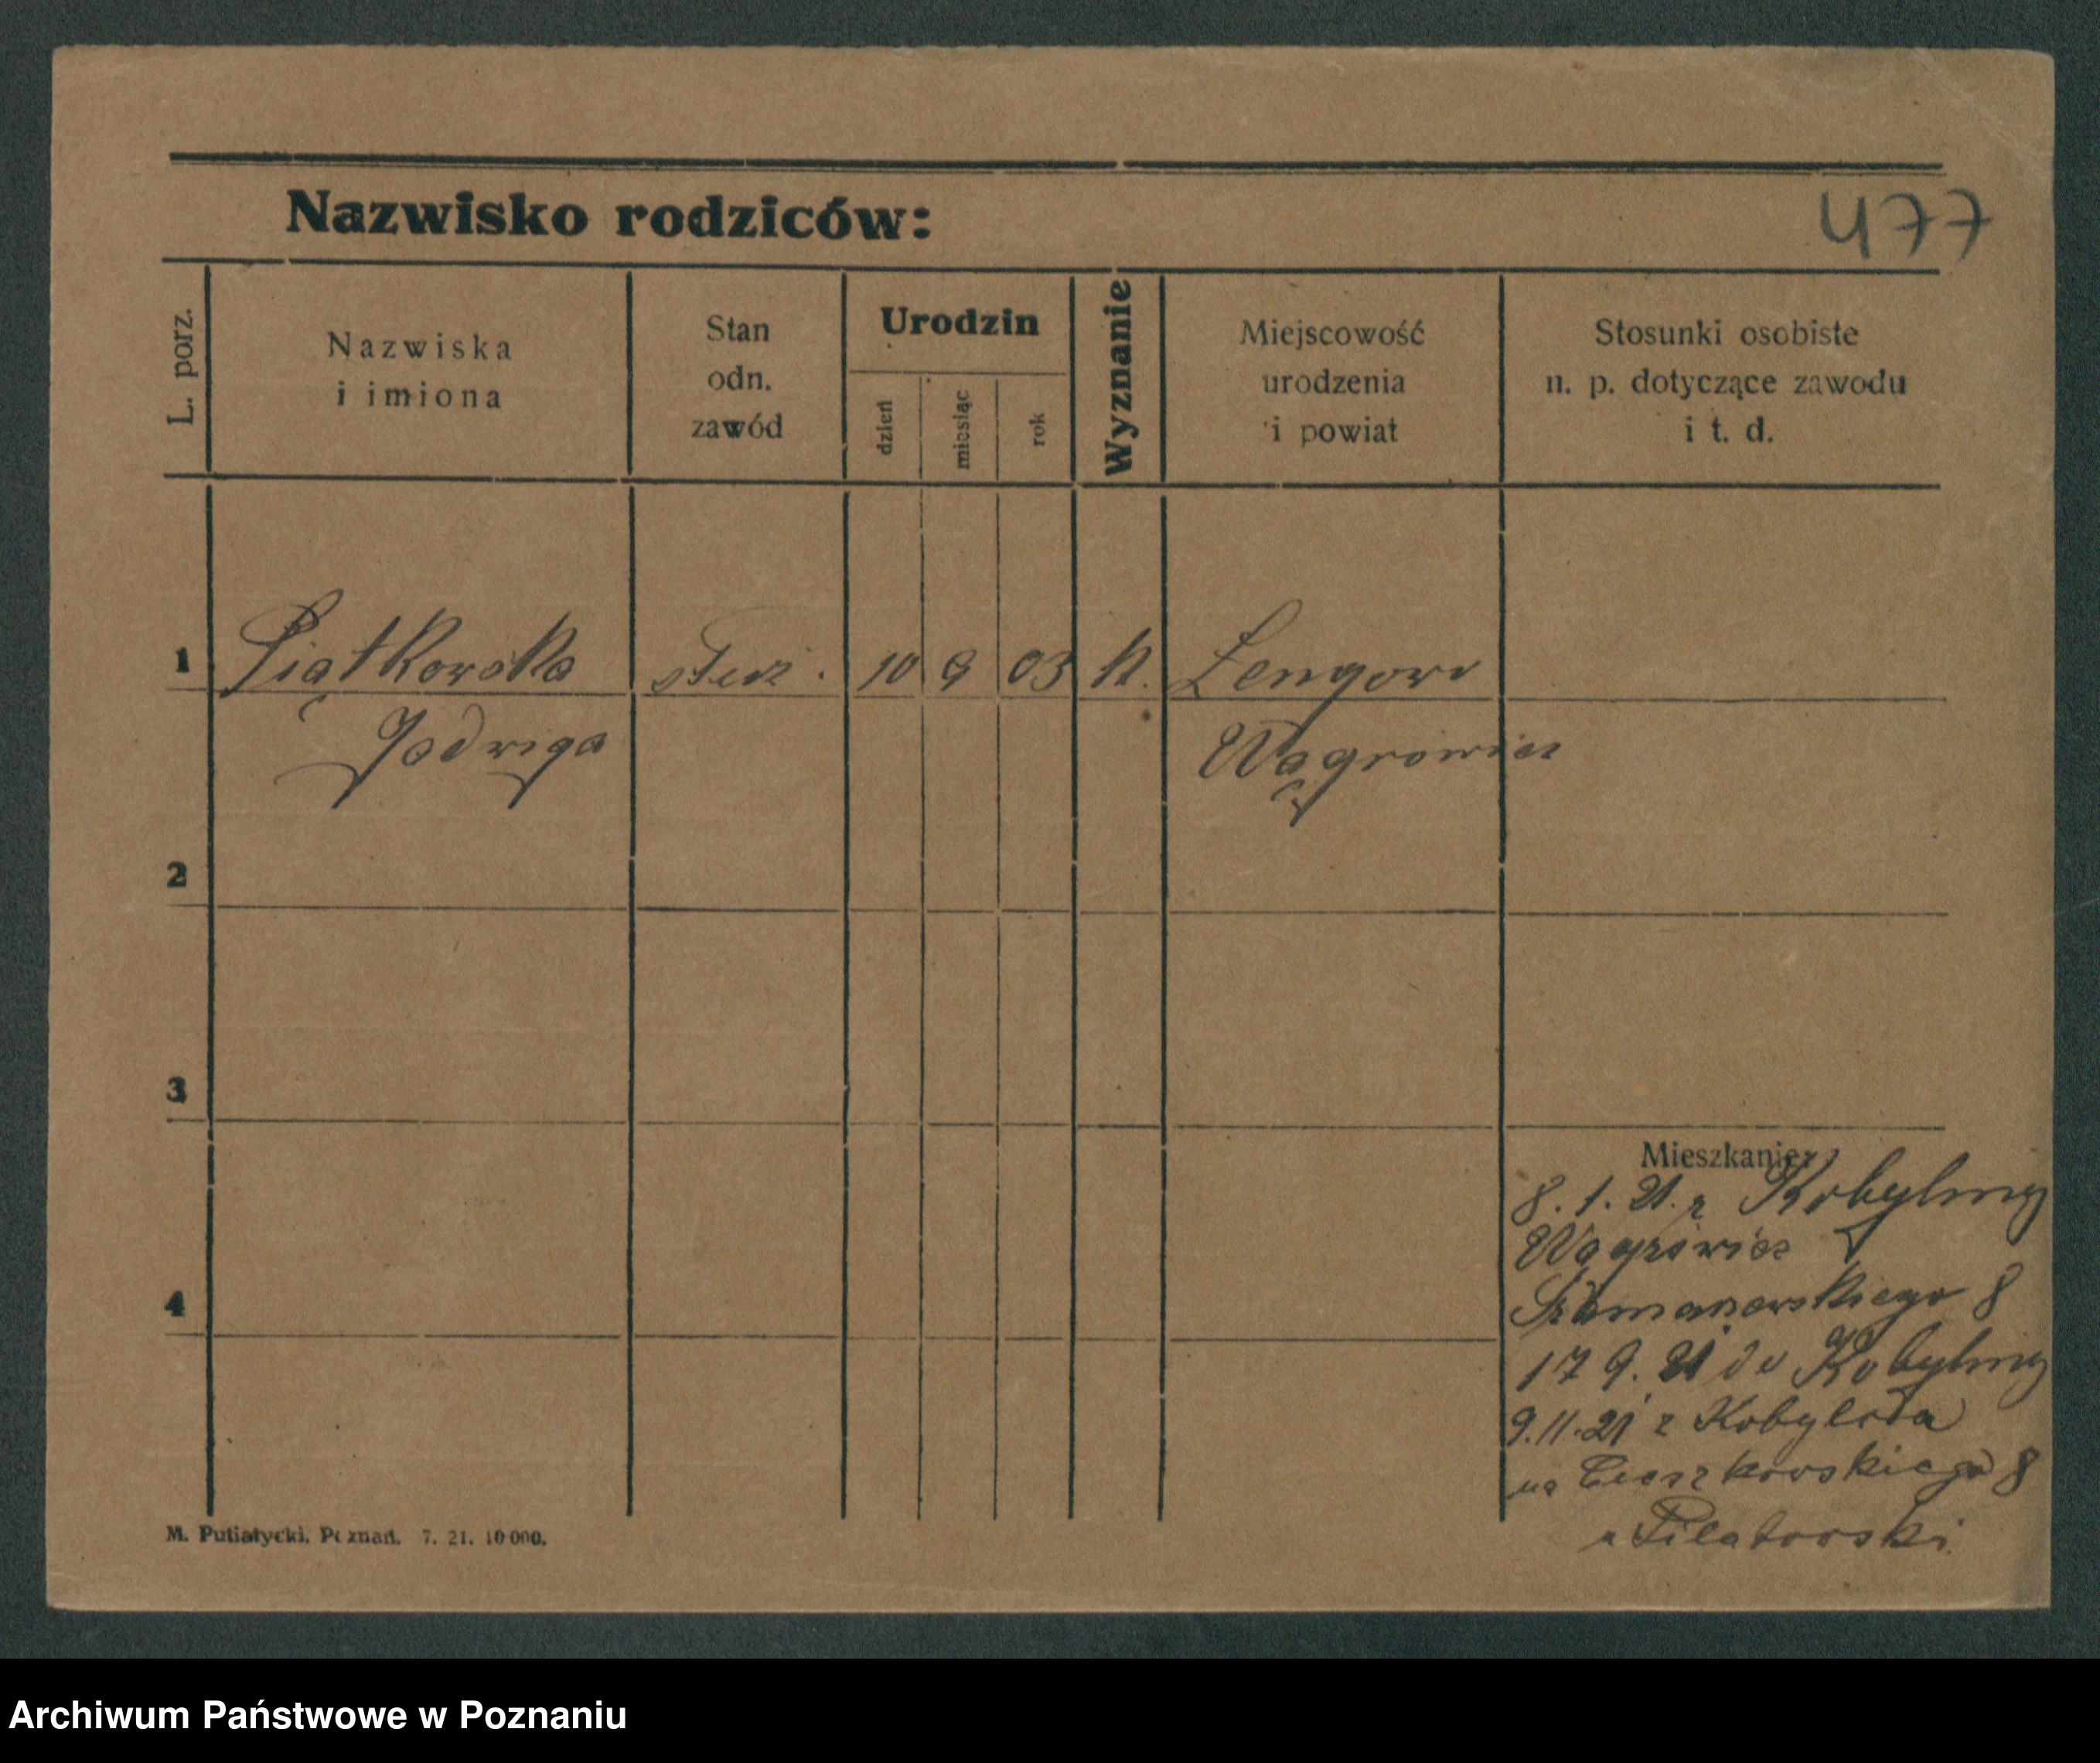 Nazwisko rodziców:
477
L. porz.
Nazwiska
i imiona
Stan
odn.
zawód
Urodzin
dzień
miesiąc
rok
Wyznanie
Miejscowość
urodzenia
i powiat
Stosunki osobiste
n. p. dotyczące zawodu
i t. d.
1 Piątkowska służ. 10 9 03 k. Lengowo
Jadwiga Wągrowiec
2
3
4
Mieszkanie:
8. 1. 21. z Kobylnicy
Wągrowiec
8
17 9. 21 do Kobylnicy
9.11.21 z
na Cieszkowskiego 8
u Pilatowski
M. Putiatycki. Poznań. 7. 21. 10 000.
Archiwum Państwowe w Poznaniu